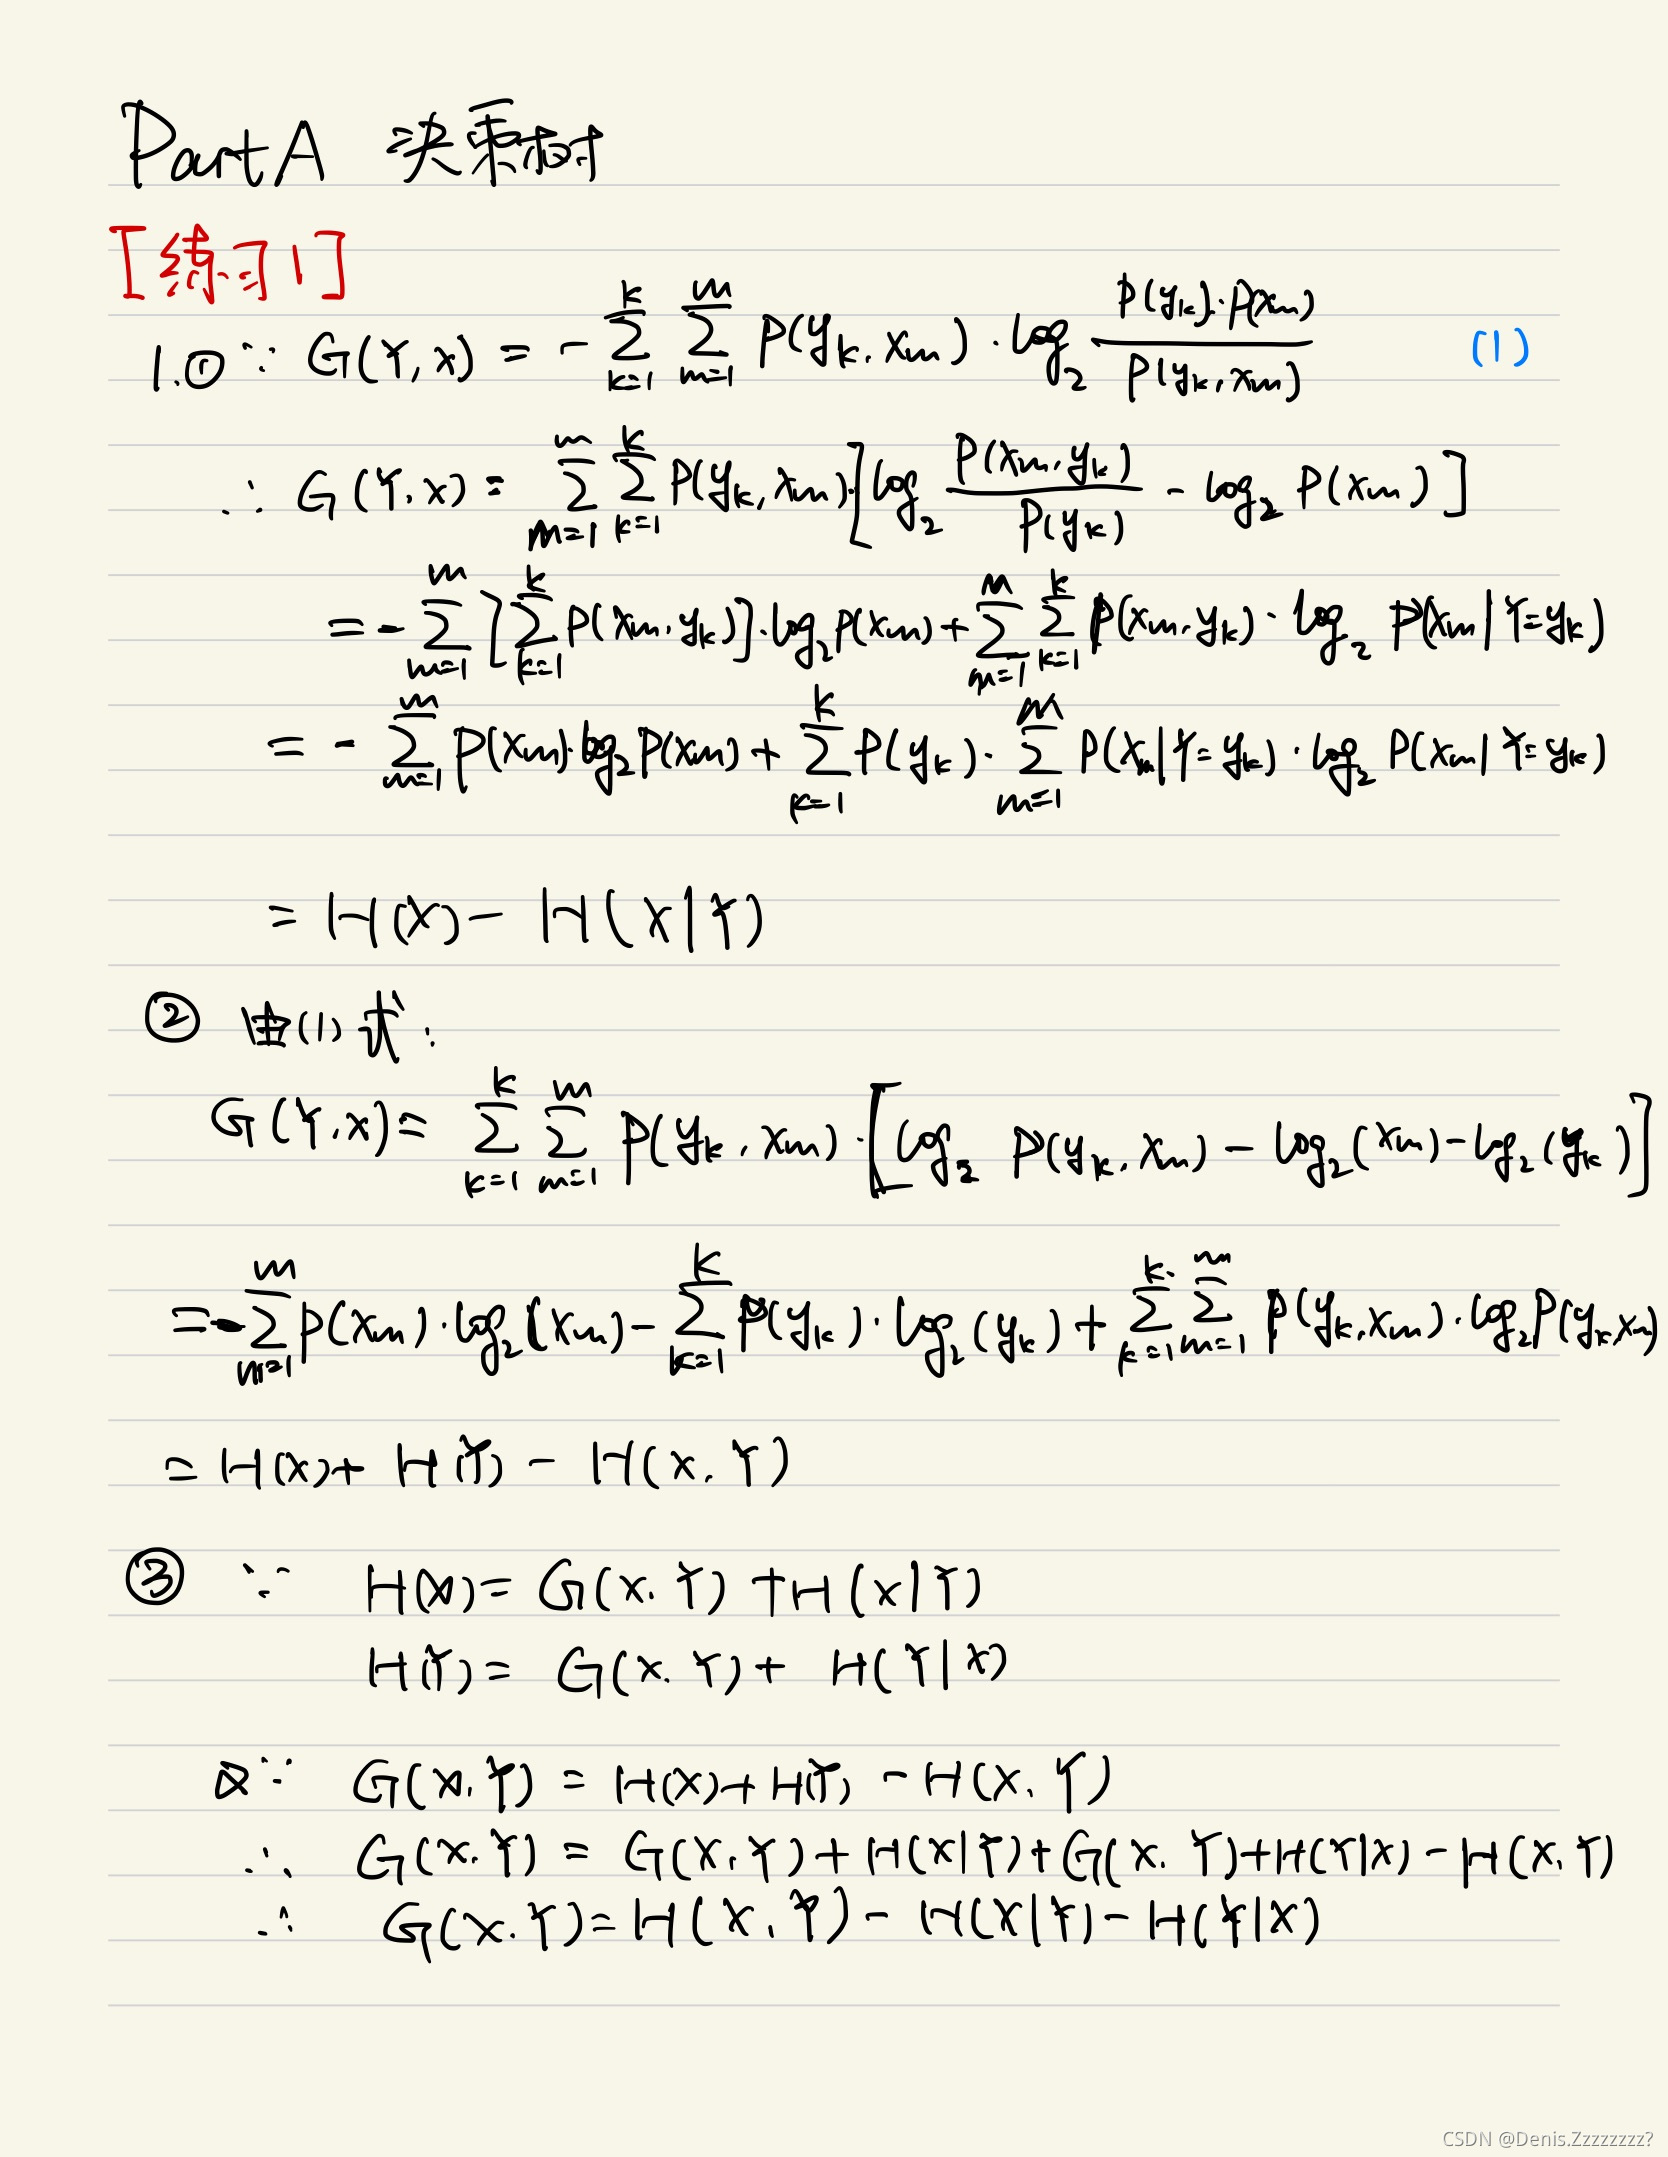 Part A 决策树
[练习1]
1.① ∵ G(Y,X) = -∑_{k=1}^{K} ∑_{m=1}^{m} P(y_k, x_m)·log_2 \frac{P(y_k)·P(x_m)}{P(y_k, x_m)} (1)
∴ G(Y,X) = ∑_{m=1}^{m} ∑_{k=1}^{K} P(y_k, x_m)·[log_2 \frac{P(x_m, y_k)}{P(y_k)} - log_2 P(x_m)]
= -∑_{m=1}^{m} [∑_{k=1}^{K} P(x_m, y_k)]·log_2 P(x_m) + ∑_{m=1}^{m} ∑_{k=1}^{K} P(x_m, y_k)·log_2 P(x_m|Y=y_k)
= -∑_{m=1}^{m} P(x_m)·log_2 P(x_m) + ∑_{k=1}^{K} P(y_k)·∑_{m=1}^{m} P(x_m|Y=y_k)·log_2 P(x_m|Y=y_k)
= H(X) - H(X|Y)
② 由(1)式:
G(Y,X) = ∑_{k=1}^{K} ∑_{m=1}^{m} P(y_k, x_m)·[log_2 P(y_k, x_m) - log_2(x_m) - log_2(y_k)]
= -∑_{m=1}^{m} P(x_m)·log_2(x_m) - ∑_{k=1}^{K} P(y_k)·log_2(y_k) + ∑_{k=1}^{K} ∑_{m=1}^{m} P(y_k, x_m)·log_2 P(y_k, x_m)
= H(X) + H(Y) - H(X,Y)
③ ∵ H(X) = G(X,Y) + H(X|Y)
H(Y) = G(X,Y) + H(Y|X)
又∵ G(X,Y) = H(X) + H(Y) - H(X,Y)
∴ G(X,Y) = G(X,Y) + H(X|Y) + G(X,Y) + H(Y|X) - H(X,Y)
∴ G(X,Y) = H(X,Y) - H(X|Y) - H(Y|X)
CSDN @Denis.Zzzzzzzz?